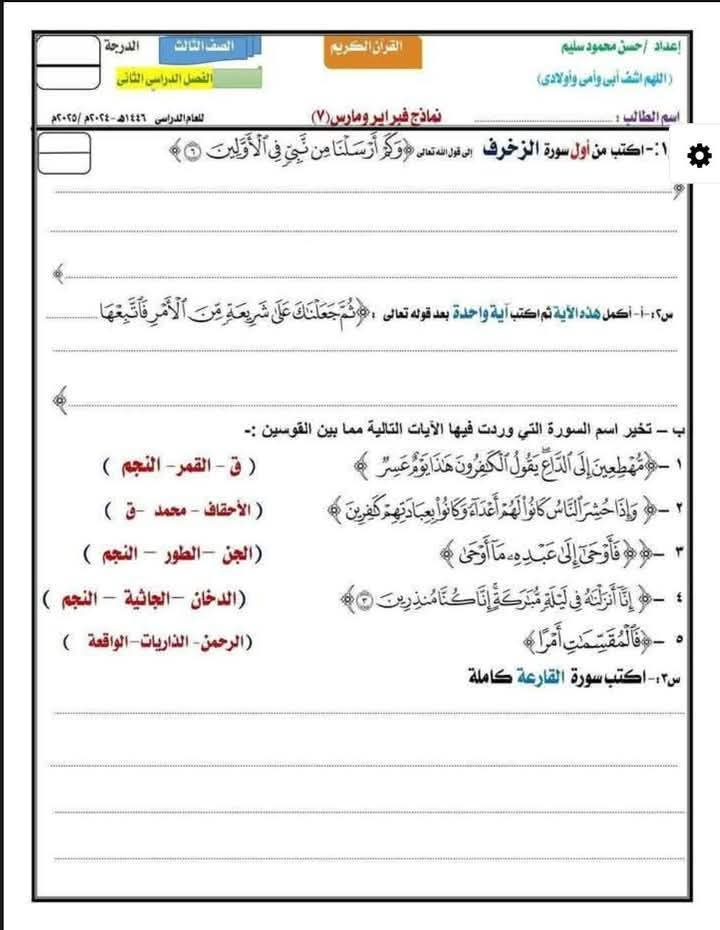 إعداد / حسن محمود سليم
القرآن الكريم
الصف الثالث
الدرجة
(اللهم اشف أبي وأمي وأولادي)
الفصل الدراسي الثانى
اسم الطالب :
نماذج فبراير ومارس (٧)
للعام الدراسي ١٤٤٦هـ - ٢٠٢٤م / ٢٠٢٥م
١:- اكتب من أول سورة الزخرف إلى قول الله تعالى ﴿وَكَمْ أَرْسَلْنَا مِن نَّبِيٍّ فِي الْأَوَّلِينَ ٦﴾
﴿
﴾
س٢:- أ - أكمل هذه الآية ثم اكتب آية واحدة بعد قوله تعالى : ﴿ثُمَّ جَعَلْنَاكَ عَلَى شَرِيعَةٍ مِّنَ الْأَمْرِ فَاتَّبِعْهَا
﴾
ب – تخير اسم السورة التي وردت فيها الآيات التالية مما بين القوسين :-
١ – ﴿مُّهْطِعِينَ إِلَى الدَّاعِ يَقُولُ الْكَافِرُونَ هَذَا يَوْمٌ عَسِرٌ ﴾ ( ق - القمر - النجم )
٢ – ﴿ وَإِذَا حُشِرَ النَّاسُ كَانُوا لَهُمْ أَعْدَاءً وَكَانُوا بِعِبَادَتِهِمْ كَافِرِينَ ﴾ ( الأحقاف - محمد - ق )
٣ – ﴿ ﴿فَأَوْحَى إِلَى عَبْدِهِ مَا أَوْحَى ﴾ (الجن – الطور – النجم )
٤ – ﴿ إِنَّا أَنزَلْنَاهُ فِي لَيْلَةٍ مُّبَارَكَةٍ إِنَّا كُنَّا مُنذِرِينَ ٣﴾ (الدخان – الجاثية – النجم )
٥ – ﴿فَالْمُقَسِّمَاتِ أَمْرًا ﴾ (الرحمن - الذاريات - الواقعة )
س٣:- اكتب سورة القارعة كاملة